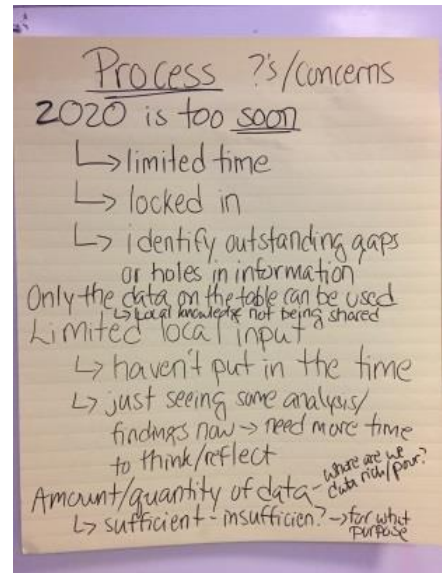 Process ?'s/concerns
2020 is too soon
↳ limited time
↳ locked in
↳ identify outstanding gaps
or holes in information
Only the data on the table can be used
↳ Local knowledge not being shared
Limited local input
↳ haven't put in the time
↳ just seeing some analysis/
findings now → need more time
to think/reflect
Amount/quantity of data - where are we
data rich/poor?
↳ sufficient - insufficien? → for what
purpose